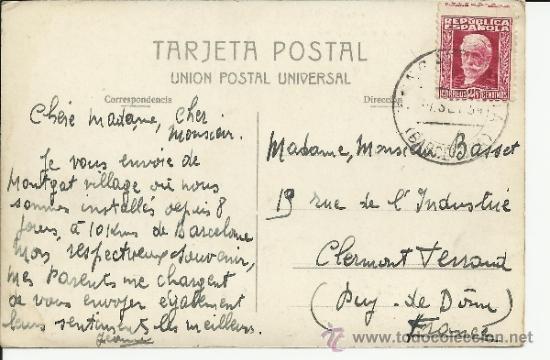 REPÚBLICA
ESPAÑOLA
TARJETA POSTAL
UNION POSTAL UNIVERSAL
Correspondencia
Dirección
Chère Madame, Cher
Monsieur.
Je vous envoie de
Montgat village où nous
sommes installés depuis 8
jours, à 10 Kms de Barcelone
Mon respectueux souvenir,
Mes Parents me chargent
de vous envoyer également
leurs sentiments les meilleurs.
Jeanne
Madame, Monsieur Basset
19 rue de l'Industrie
Clermont Ferrand
(Puy-de Dôme)
France
todocoleccion.net